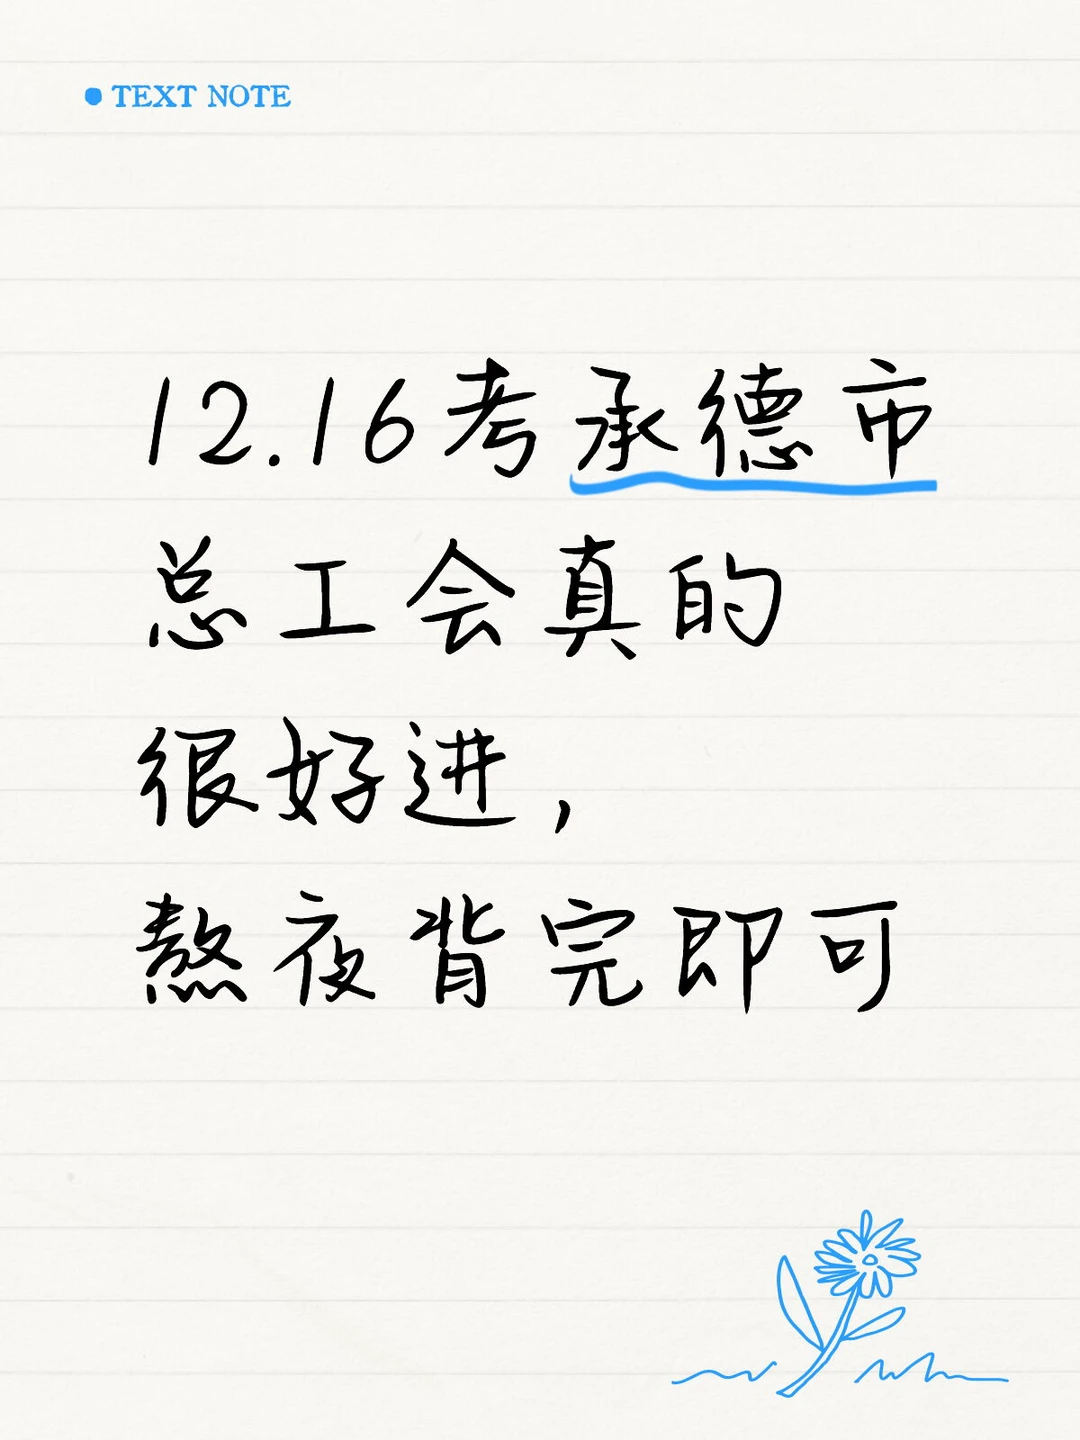 TEXT NOTE
12.16考承德市
总工会真的
很好进，
熬夜背完即可